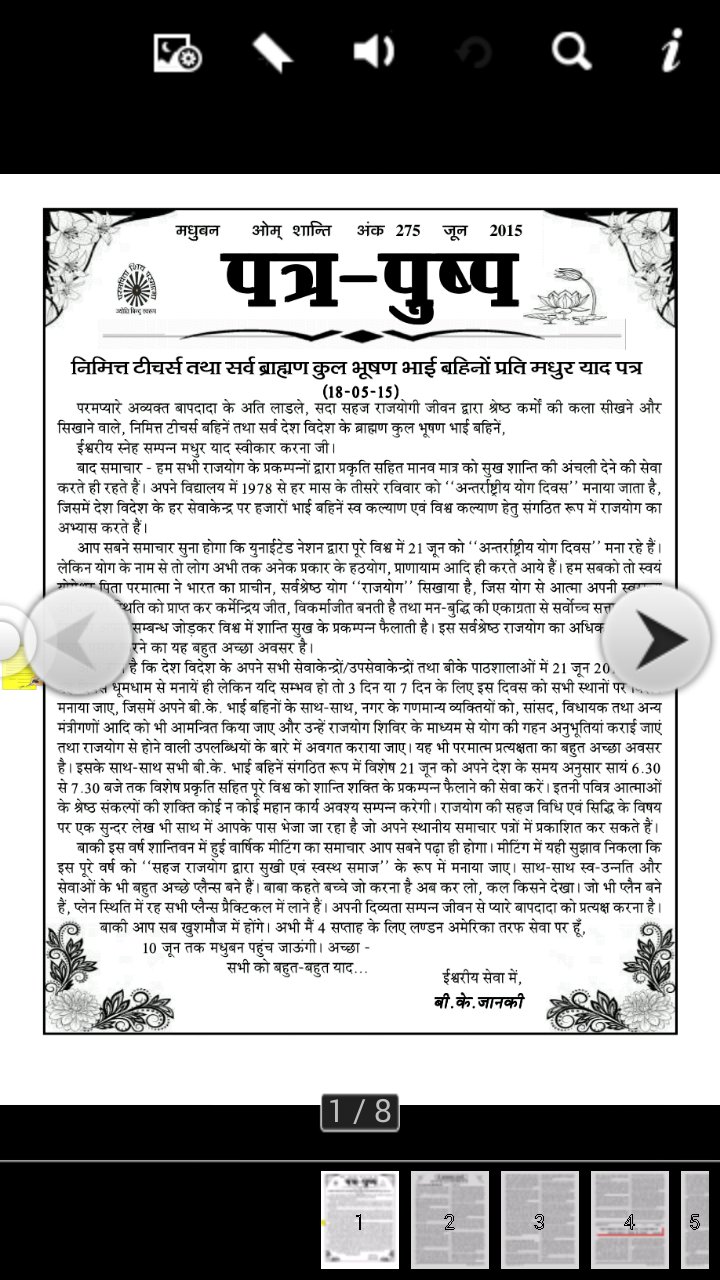 मधुबन ओम् शान्ति अंक 275 जून 2015
पत्र-पुष्प
निमित्त टीचर्स तथा सर्व ब्राह्मण कुल भूषण भाई बहिनों प्रति मधुर याद पत्र
(18-05-15)
परमप्यारे अव्यक्त बापदादा के अति लाडले, सदा सहज राजयोगी जीवन द्वारा श्रेष्ठ कर्मों की कला सीखने और
सिखाने वाले, निमित्त टीचर्स बहिनें तथा सर्व देश विदेश के ब्राह्मण कुल भूषण भाई बहिनें,
ईश्वरीय स्नेह सम्पन्न मधुर याद स्वीकार करना जी।
बाद समाचार - हम सभी राजयोग के प्रकम्पन्नों द्वारा प्रकृति सहित मानव मात्र को सुख शान्ति की अंचली देने की सेवा
करते ही रहते हैं। अपने विद्यालय में 1978 से हर मास के तीसरे रविवार को ‘‘अन्तर्राष्ट्रीय योग दिवस’’ मनाया जाता है,
जिसमें देश विदेश के हर सेवाकेन्द्र पर हजारों भाई बहिनें स्व कल्याण एवं विश्व कल्याण हेतु संगठित रूप में राजयोग का
अभ्यास करते हैं।
आप सबने समाचार सुना होगा कि युनाईटेड नेशन द्वारा पूरे विश्व में 21 जून को ‘‘अन्तर्राष्ट्रीय योग दिवस’’ मना रहे हैं।
लेकिन योग के नाम से तो लोग अभी तक अनेक प्रकार के हठयोग, प्राणायाम आदि ही करते आये हैं। हम सबको तो स्वयं
पिता परमात्मा ने भारत का प्राचीन, सर्वश्रेष्ठ योग ‘‘राजयोग’’ सिखाया है, जिस योग से आत्मा अपनी
को प्राप्त कर कर्मेन्द्रिय जीत, विकर्माजीत बनती है तथा मन-बुद्धि की एकाग्रता से सर्वोच्च
सम्बन्ध जोड़कर विश्व में शान्ति सुख के प्रकम्पन फैलाती है। इस सर्वश्रेष्ठ राजयोग का
का यह बहुत अच्छा अवसर है।
है कि देश विदेश के अपने सभी सेवाकेन्द्रों/उपसेवाकेन्द्रों तथा बीके पाठशालाओं में 21 जून
धूमधाम से मनायें ही लेकिन यदि सम्भव हो तो 3 दिन या 7 दिन के लिए इस दिवस को सभी स्थानों पर
मनाया जाए, जिसमें अपने बी.के. भाई बहिनों के साथ-साथ, नगर के गणमान्य व्यक्तियों को, सांसद, विधायक तथा अन्य
मंत्रीगणों आदि को भी आमन्त्रित किया जाए और उन्हें राजयोग शिविर के माध्यम से योग की गहन अनुभूतियां कराई जाएं
तथा राजयोग से होने वाली उपलब्धियों के बारे में अवगत कराया जाए। यह भी परमात्म प्रत्यक्षता का बहुत अच्छा अवसर
है। इसके साथ-साथ सभी बी.के. भाई बहिनें संगठित रूप में विशेष 21 जून को अपने देश के समय अनुसार सायं 6.30
से 7.30 बजे तक विशेष प्रकृति सहित पूरे विश्व को शान्ति शक्ति के प्रकम्पन फैलाने की सेवा करें। इतनी पवित्र आत्माओं
के श्रेष्ठ संकल्पों की शक्ति कोई न कोई महान कार्य अवश्य सम्पन्न करेगी। राजयोग की सहज विधि एवं सिद्धि के विषय
पर एक सुन्दर लेख भी साथ में आपके पास भेजा जा रहा है जो अपने स्थानीय समाचार पत्रों में प्रकाशित कर सकते हैं।
बाकी इस वर्ष शान्तिवन में हुई वार्षिक मीटिंग का समाचार आप सबने पढ़ा ही होगा। मीटिंग में यही सुझाव निकला कि
इस पूरे वर्ष को ‘‘सहज राजयोग द्वारा सुखी एवं स्वस्थ समाज’’ के रूप में मनाया जाए। साथ-साथ स्व-उन्नति और
सेवाओं के भी बहुत अच्छे प्लैन्स बने हैं। बाबा कहते बच्चे जो करना है अब कर लो, कल किसने देखा। जो भी प्लैन बने
हैं, प्लेन स्थिति में रह सभी प्लैन्स प्रैक्टिकल में लाने हैं। अपनी दिव्यता सम्पन्न जीवन से प्यारे बापदादा को प्रत्यक्ष करना है।
बाकी आप सब खुशमौज में होंगे। अभी मैं 4 सप्ताह के लिए लण्डन अमेरिका तरफ सेवा पर हूँ,
10 जून तक मधुबन पहुंच जाऊंगी। अच्छा -
सभी को बहुत-बहुत याद...
ईश्वरीय सेवा में,
बी.के.जानकी
1 / 8
1 2 3 4 5